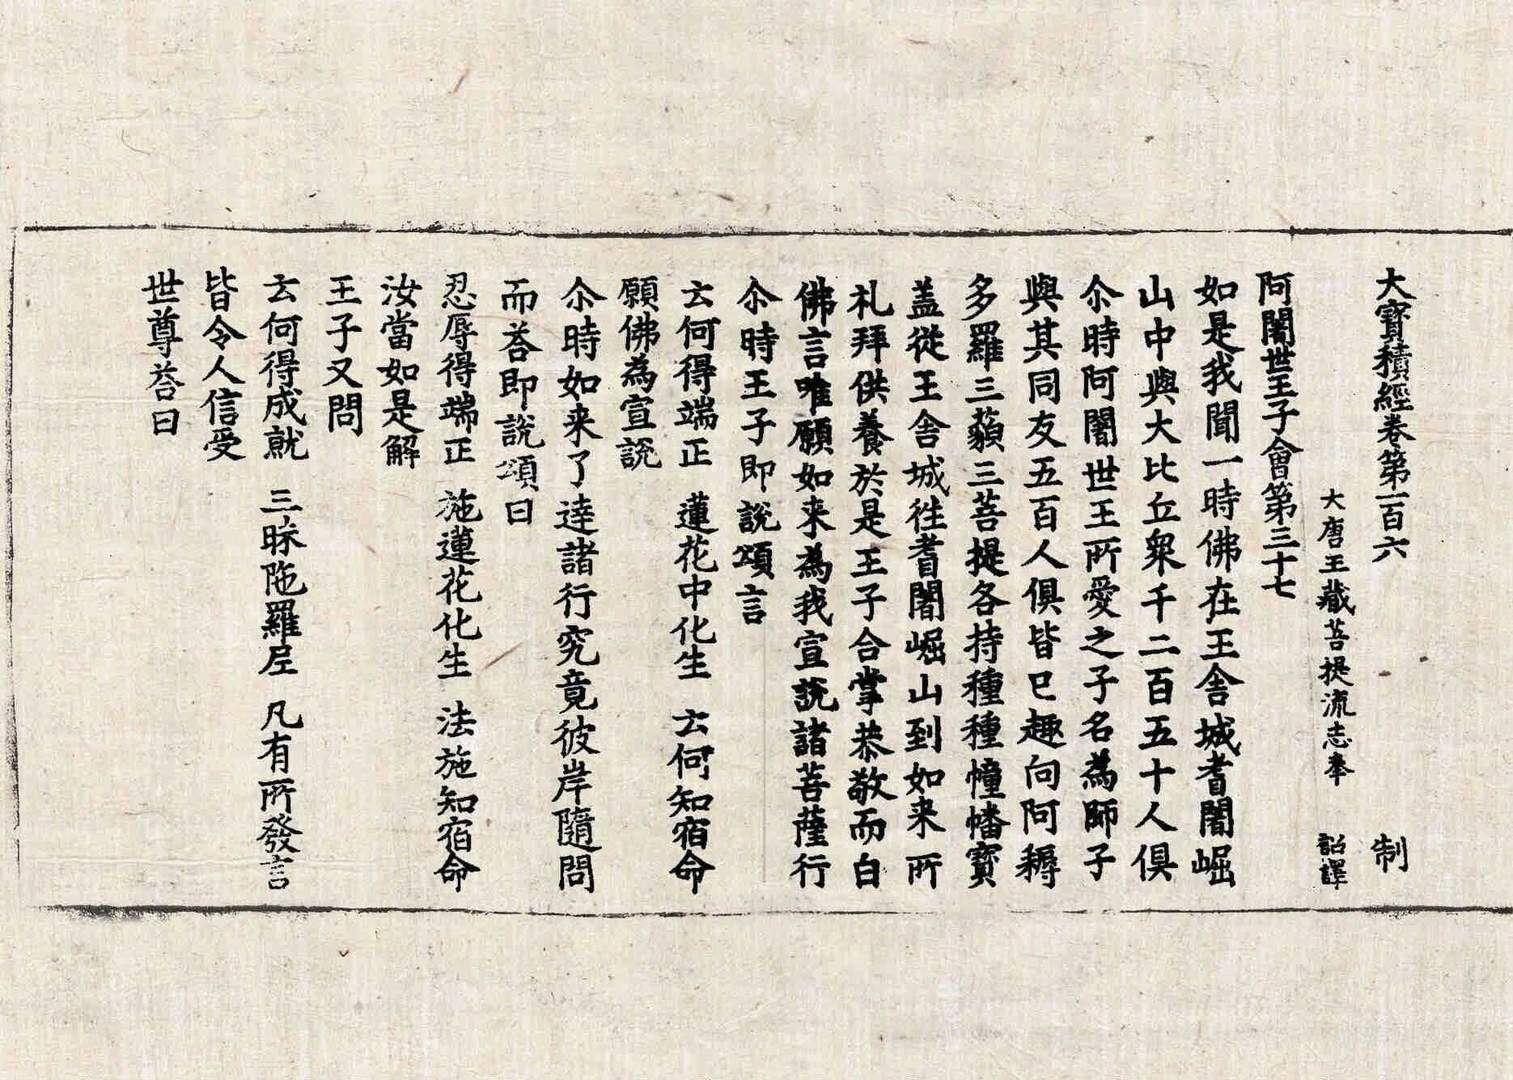 大寶積經卷第一百六　制
大唐三藏菩提流志奉　詔譯
阿闍世王子會第三十七
如是我聞一時佛在王舍城耆闍崛
山中與大比丘衆千二百五十人俱
尒時阿闍世王所愛之子名為師子
與其同友五百人俱皆已趣向阿耨
多羅三藐三菩提各持種種幢幡寶
盖從王舍城徃耆闍崛山到如来所
礼拜供養於是王子合掌恭敬而白
佛言唯願如来為我宣說諸菩薩行
尒時王子即說頌言
云何得端正　蓮花中化生　云何知宿命
願佛為宣說
尒時如来了達諸行究竟彼岸隨問
而荅即說頌曰
忍辱得端正　施蓮花化生　法施知宿命
汝當如是解
王子又問
云何得成就　三昧陁羅尼　凡有所發言
皆令人信受
世尊荅曰